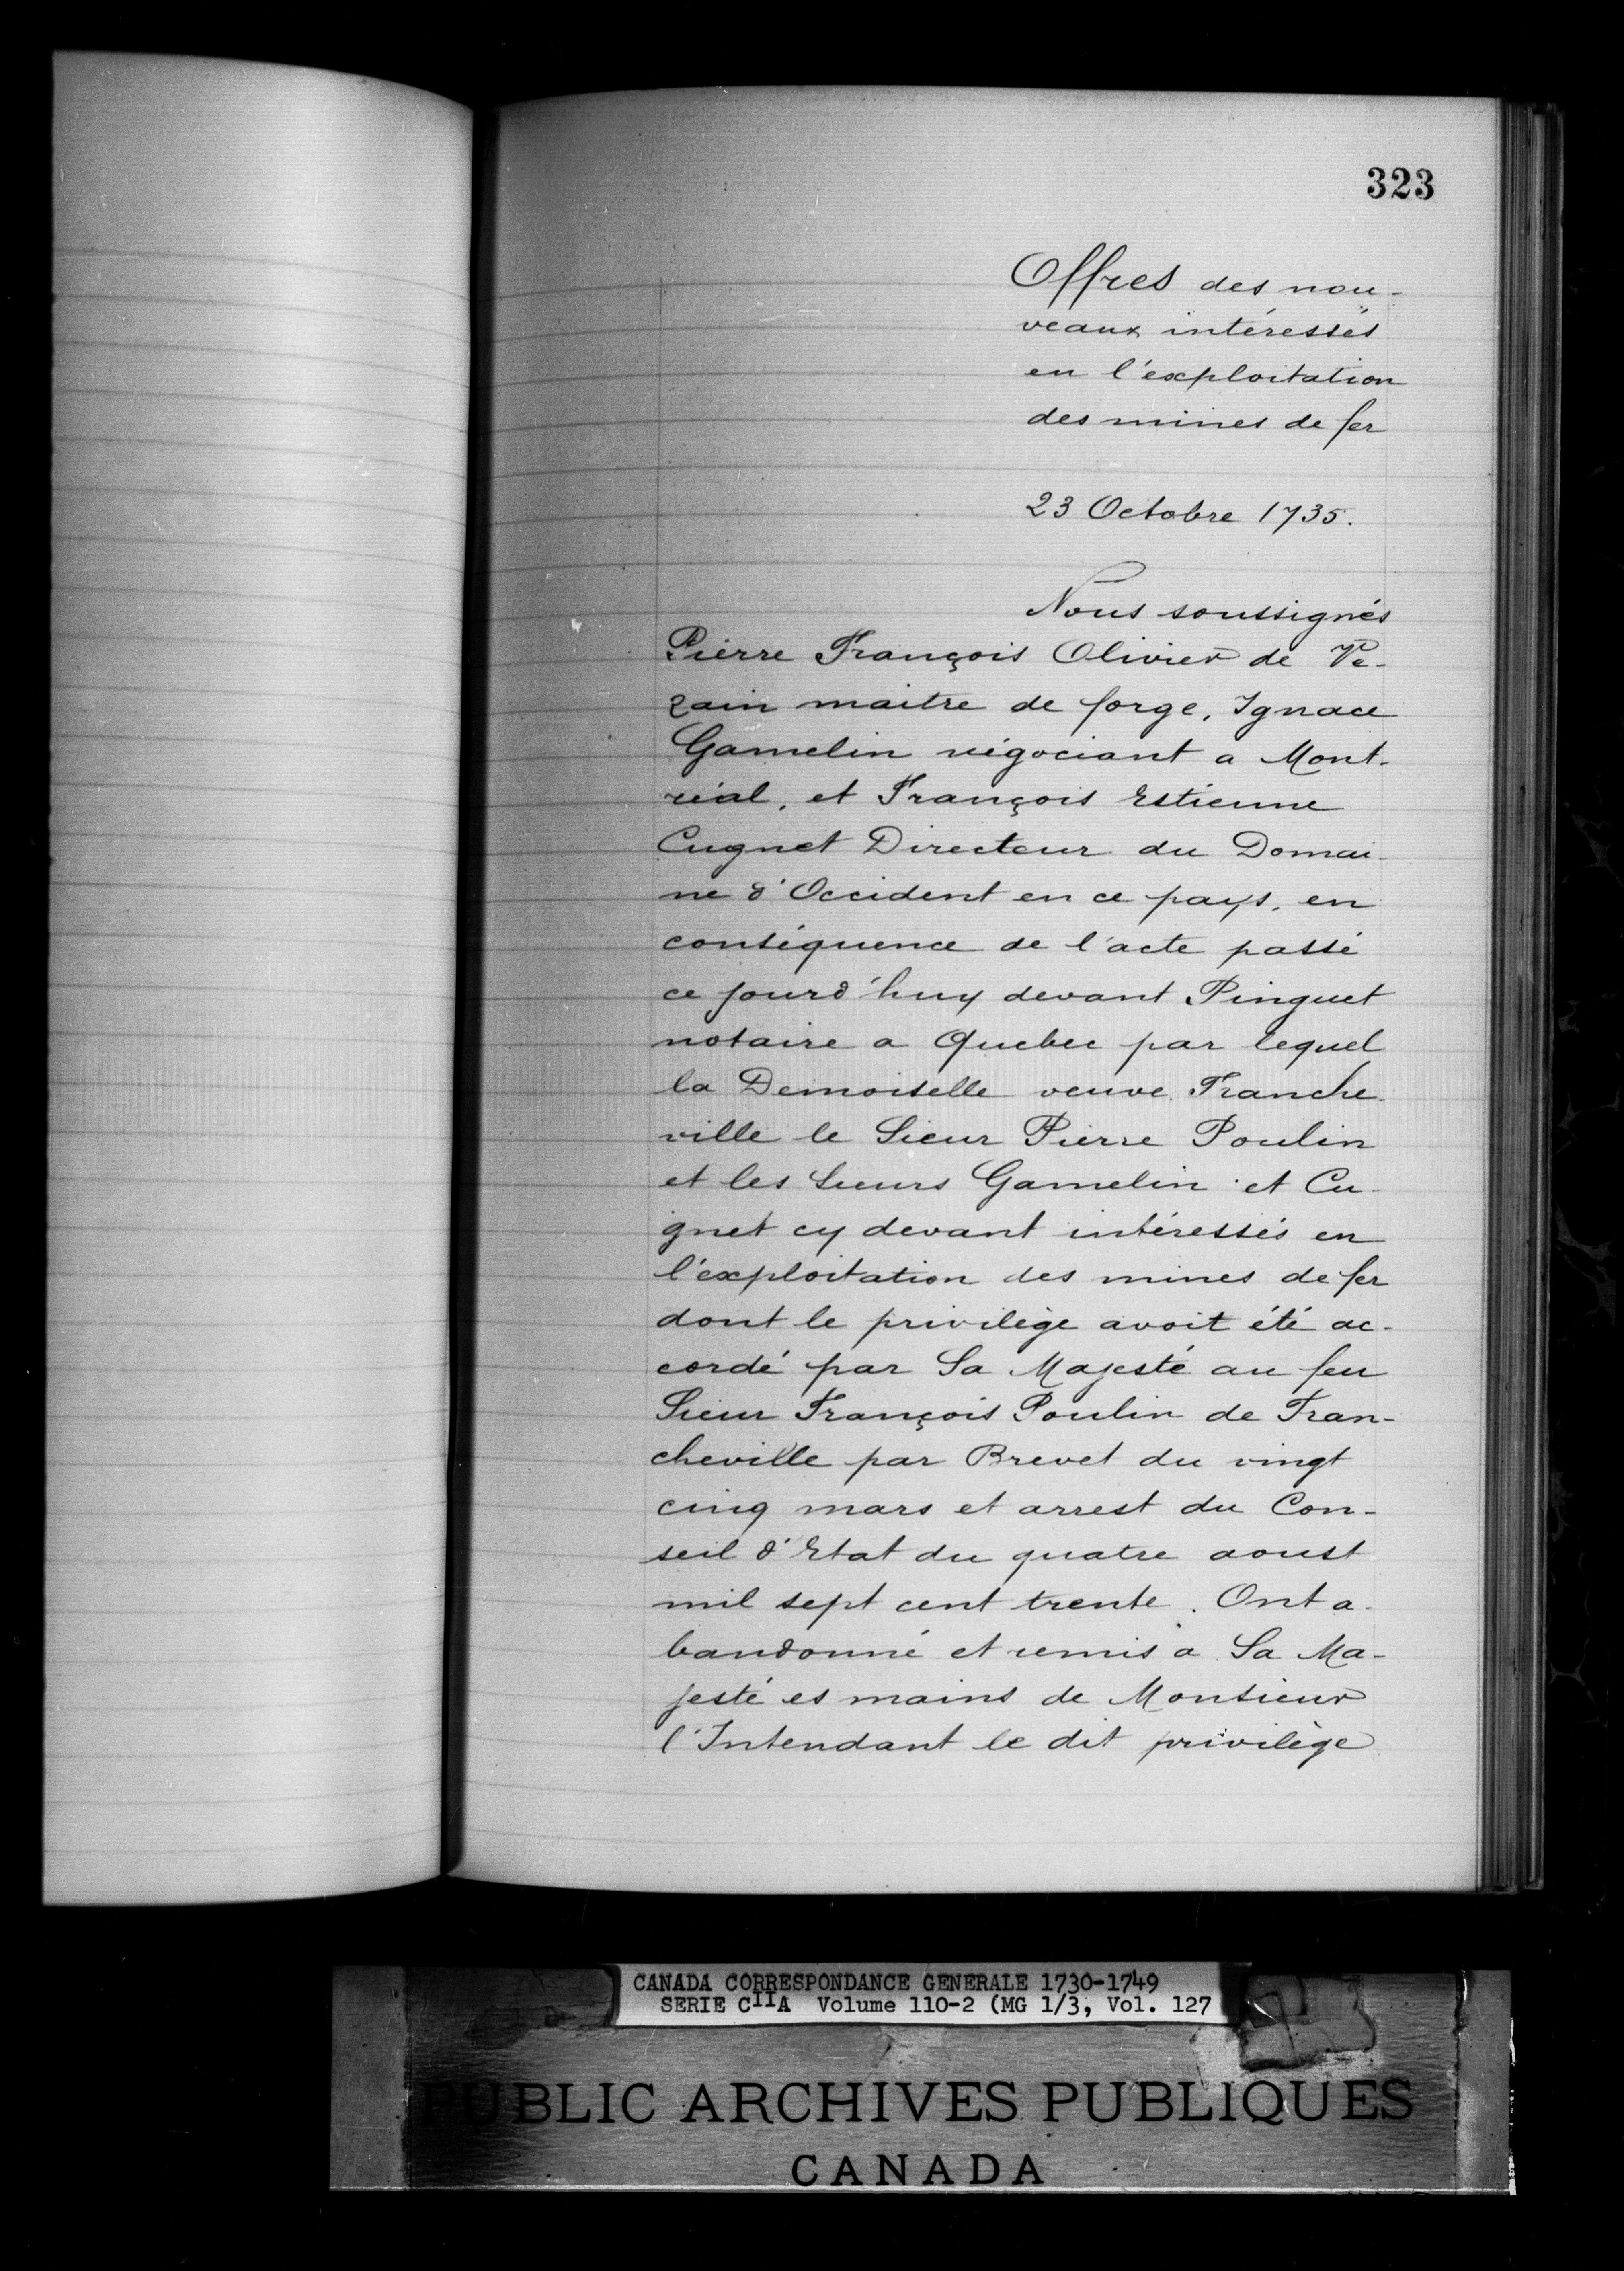 323
Offres des nou-
veaux intéressés
en l'exploitation
des mines de fer
23 Octobre 1735.
Nous soussignés
Pierre François Olivier de Ve-
zain maitre de forge, Ignace
Gamelin négociant a Mont-
réal, et François Estienne
Cugnet Directeur du Domai-
ne d'Occident en ce pays, en
conséquence de l'acte passé
ce jourd'huy devant Pinguet
notaire a Quebec par lequel
la Demoiselle veuve Franche-
ville le Sieur Pierre Poulin
et les Sieurs Gamelin et Cu-
gnet cy devant intéressés en
l'exploitation des mines de fer
dont le privilège avoit été ac-
cordé par Sa Majesté au feu
Sieur François Poulin de Fran-
cheville par Brevet du vingt
cinq mars et arrest du Con-
seil d'Etat du quatre aoust
mil sept cent trente. Ont a-
bandonné et remis a Sa Ma-
jesté es mains de Monsieur
l'Intendant le dit privilège
CANADA CORRESPONDANCE GENERALE 1730-1749
SERIE CIIA Volume 110-2 (MG 1/3, Vol. 127
PUBLIC ARCHIVES PUBLIQUES
CANADA